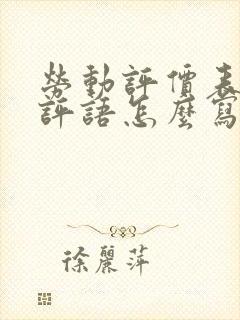 勞動評價表
評語怎麼寫
徐麗萍